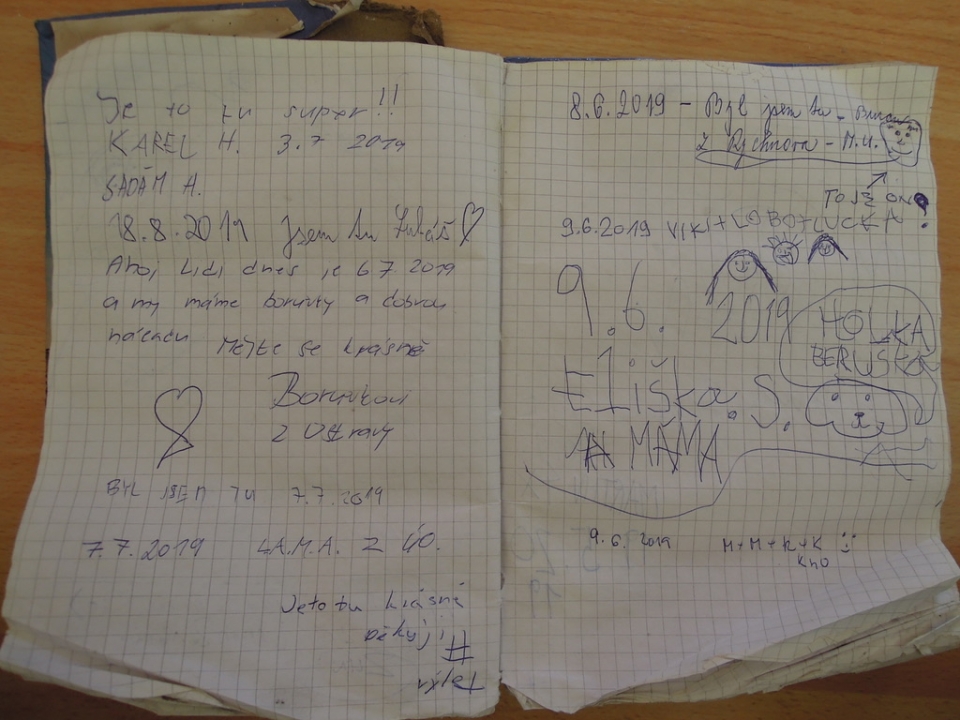 Je to tu super!!
KAREL H. 3.7 2019
SADÁM A.
18.8.2019 Jsem tu Lukáš
Ahoj lidi dnes je 6 7 2019
a my máme borůvky a dobrou
náladu Mějte se krásně
z Ostravy
BYL JSEM TU 7.7.2019
7.7.2019 LA.M.A. Z ÚO.
Je to tu krásné
8.6.2019 - Byl jsem tu
z Rychnova - M.U.
TO JE ON
9.6.2019 VIKI+LOBO+LUCKA
9.6. 2019
HOLKA
BERUŠKA
Eliška. S.
MÁMA
9.6.2019 M+M+K+K